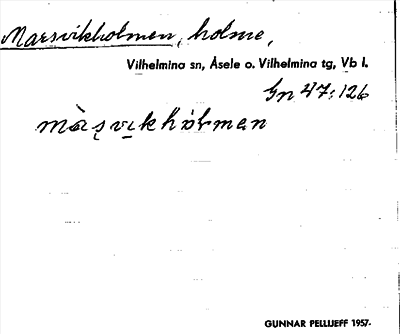 Marsvikholmen, holme,
Vilhelmina sn, Åsele o. Vilhelmina tg, Vb l.
Gn 47:126
màʂvɩkhòlmən
GUNNAR PELLIJEFF 1957.